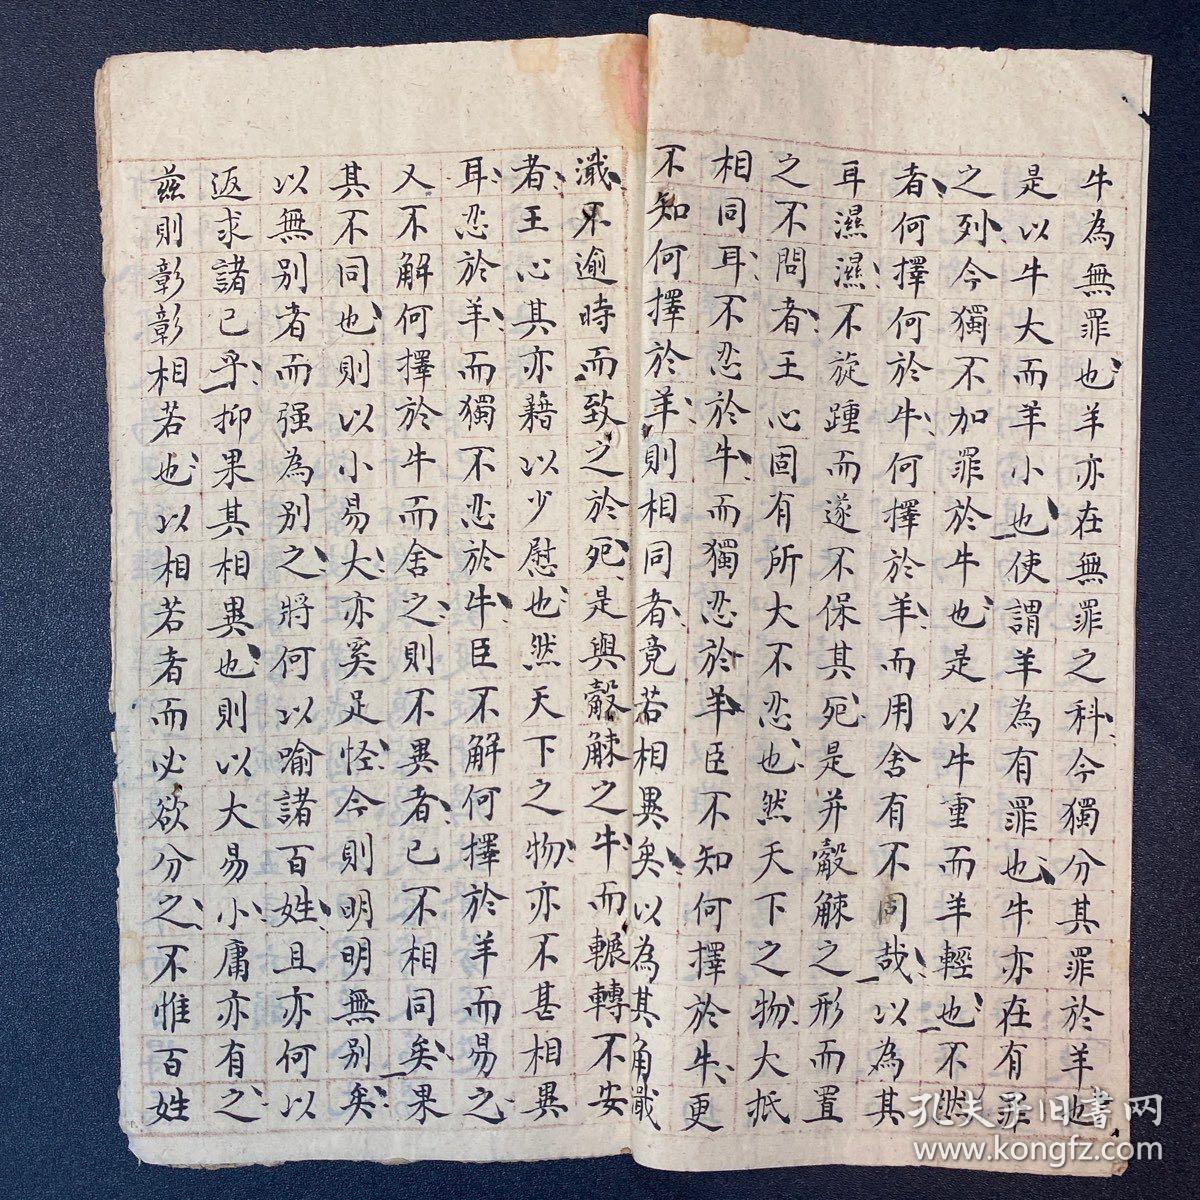 牛為無罪也羊亦在無罪之科今獨分其罪於羊也
是以牛大而羊小也使謂羊為有罪也牛亦在有罪
之列今獨不加罪於牛也是以牛重而羊輕也不然
者何擇何於牛何擇於羊而用舍有不同哉以為其
耳濕濕不旋踵而遂不保其死是并觳觫之形而置
之不問者王心固有所大不忍也然天下之物大抵
相同耳不忍於牛而獨忍於羊臣不知何擇於牛更
不知何擇於羊則相同者竟若相異矣以為其角濈
濈不逾時而致之於死是與觳觫之牛而輾轉不安
者王心其亦藉以少慰也然天下之物亦不甚相異
耳忍於羊而獨不忍於牛臣不解何擇於羊而易之
又不解何擇於牛而舍之則不異者已不相同矣果
其不同也則以小易大亦奚足怪今則明明無別矣
以無別者而强為別之將何以喻諸百姓且亦何以
返求諸己乎抑果其相異也則以大易小庸亦有之
茲則彰彰相若也以相若者而必欲分之不惟百姓
孔夫子旧書网
www.kongfz.com